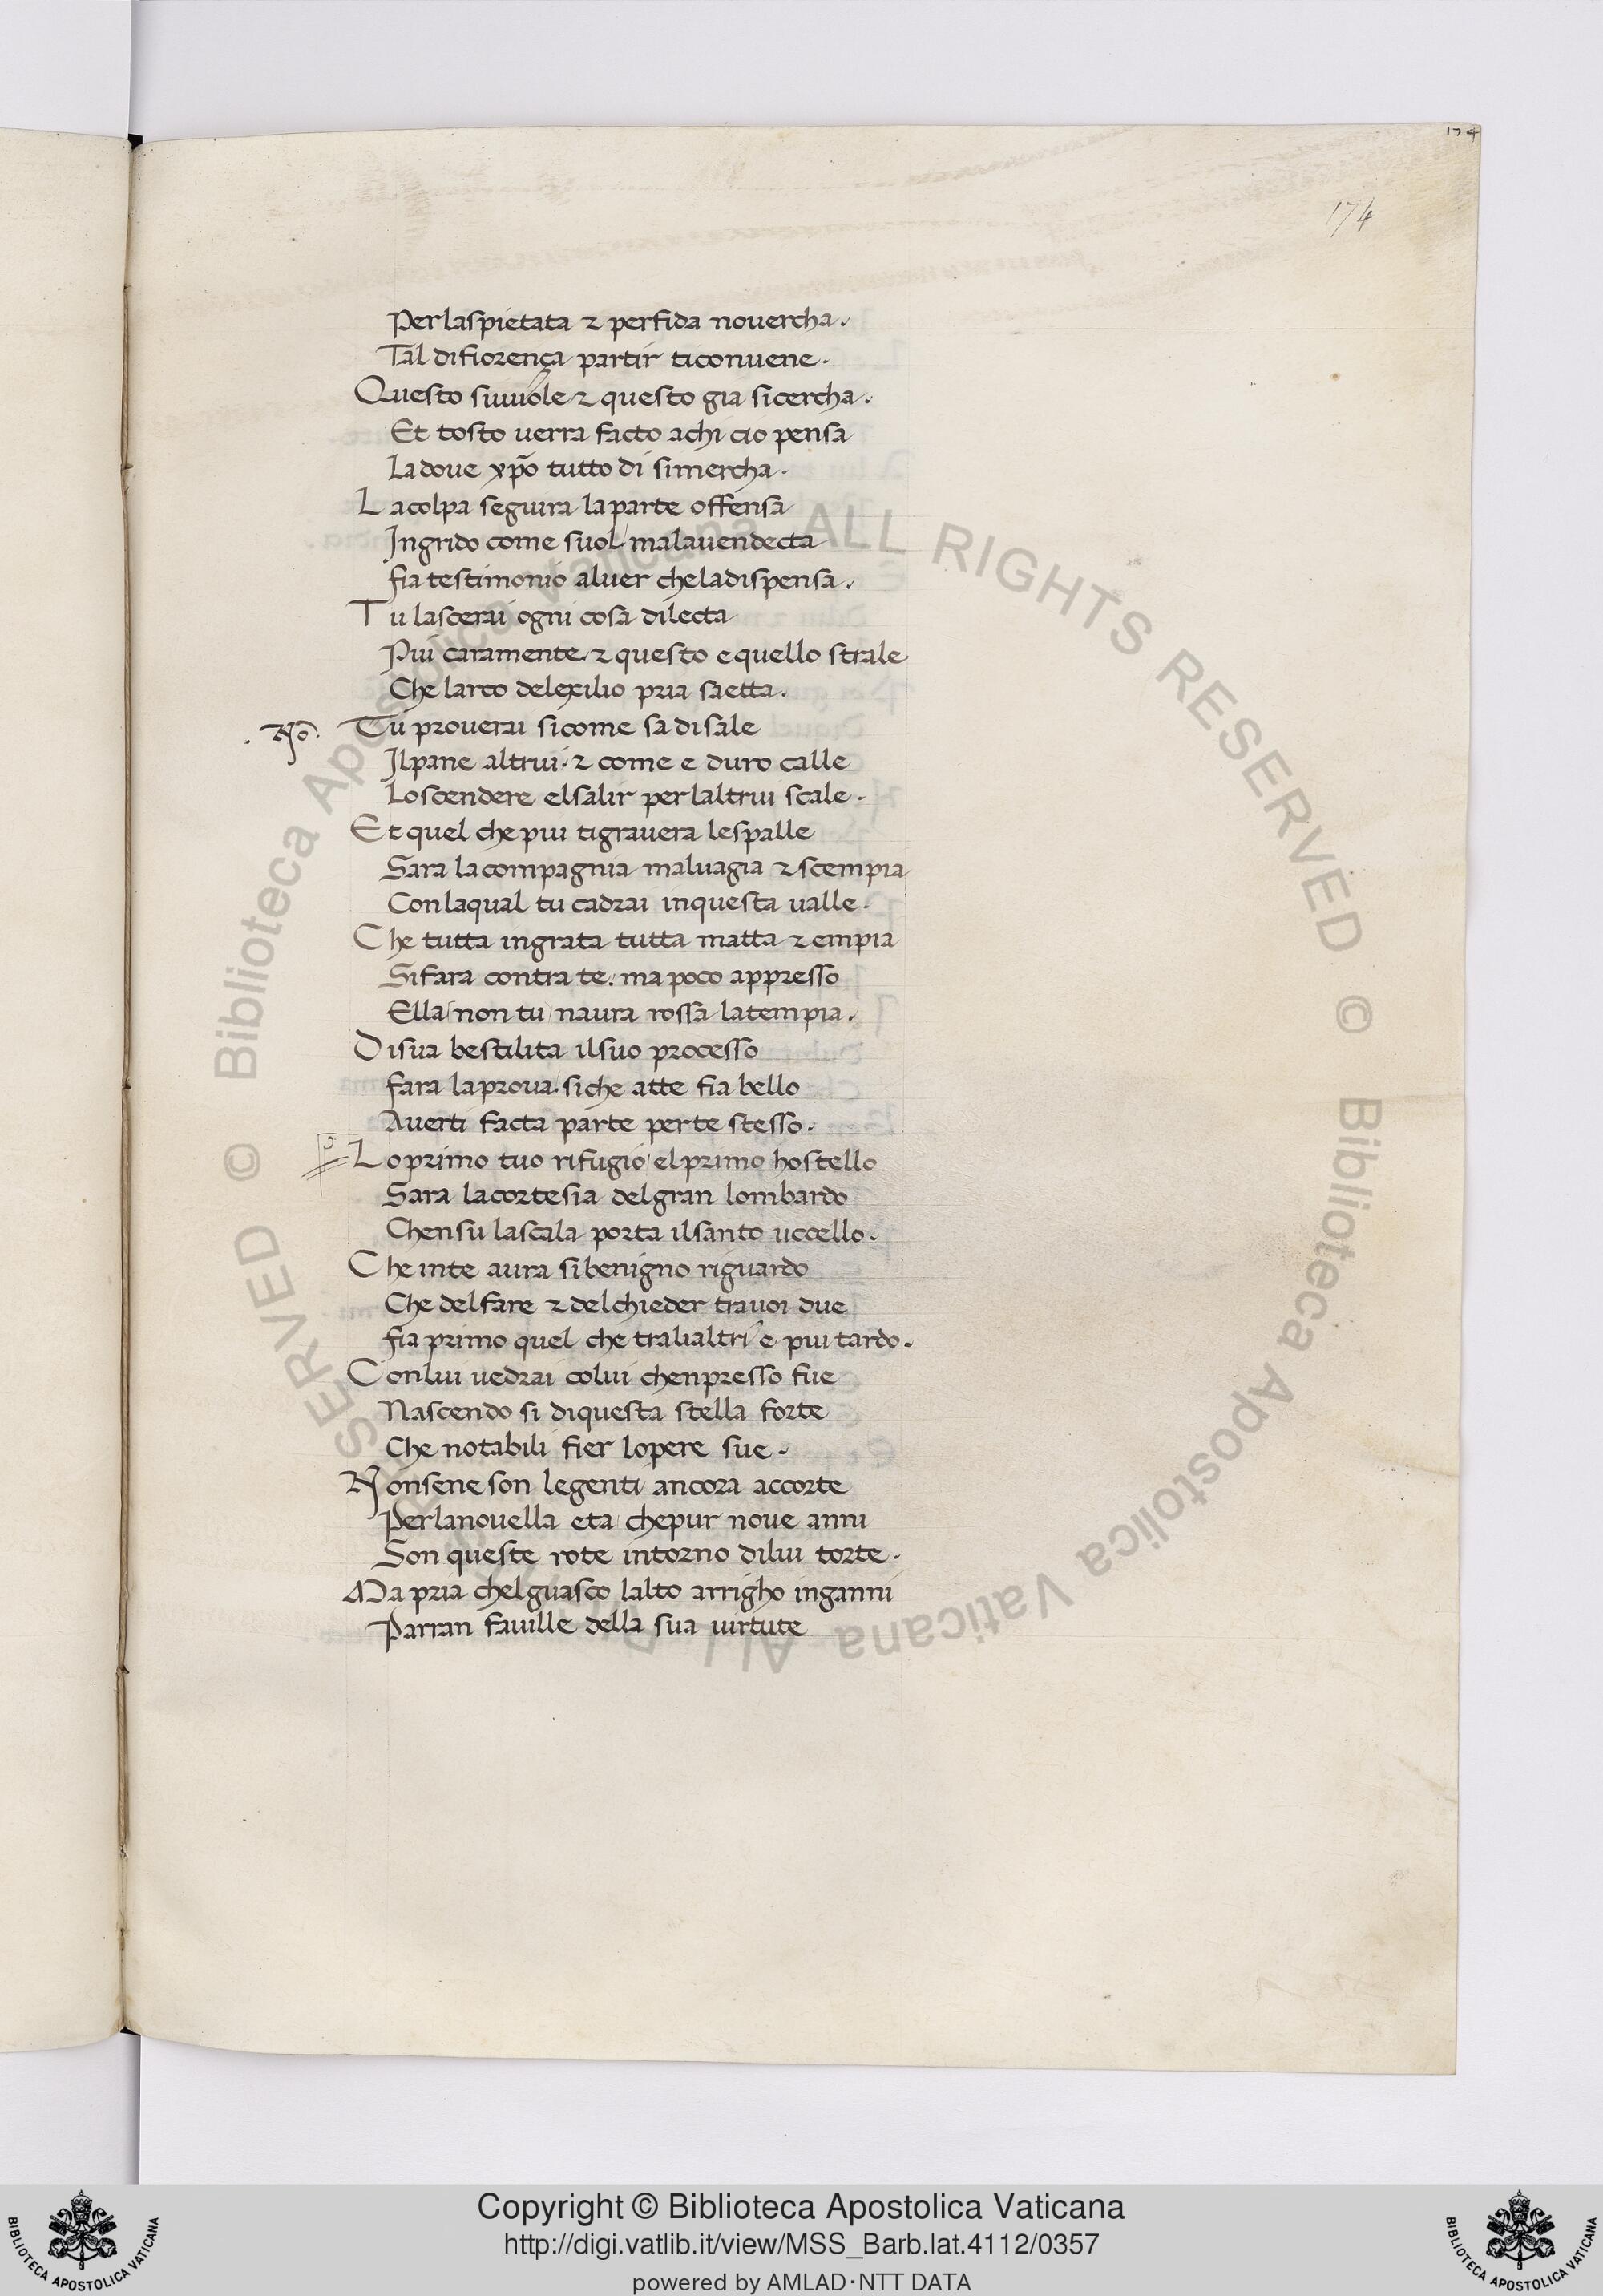 174
174
Perlaspietata ⁊ perfida nouercha.
Tal difiorença partir ticonuene.
Questo siuuole ⁊ questo gia sicercha.
Et tosto uerra facto achi cio pensa
Ladoue xp̃o tutto di simercha.
Lacolpa seguira laparte offensa
Ingrido come suol malauendecta
fia testimonio aluer cheladispensa.
Tu lascerai ogni cosa dilecta
Piu caramente. ⁊ questo e quello strale
Che larco delexilio pria saetta.
. No.
Tu prouerai sicome sa di sale
Ilpane altrui. ⁊ come e duro calle
Loscendere elsalir perlaltrui scale.
Et quel che piu tigrauera lespalle
Sara lacompagnia maluagia ⁊ scempia
Conlaqual tu cadrai inquesta ualle.
Che tutta ingrata tutta matta ⁊ empia
Sifara contra te. ma poco appresso
Ella non tu naura rossa latempia.
Disua bestilita ilsuo processo
fara laproua. siche atte fia bello
Auerti facta parte perte stesso.
Loprimo tuo rifugio elprimo hostello
Sara lacortesia delgran lombardo
Chensu lascala porta ilsanto uccello.
Che inte aura sibenigno riguardo
Che delfare ⁊ delchieder trauoi due
fia primo quel che tralialtri e piu tardo.
Conlui uedrai colui chenpresso fue
Nascendo si diquesta stella forte
Che notabili fier lopere sue.
Nonsene son legenti ancora accorte
Perlanouella eta chepur noue anni
Son queste rote intorno dilui torte.
Ma pria chelguasco lalto arrigho inganni
Parran fauille della sua uirtute
© Biblioteca Apostolica Vaticana ALL RIGHTS RESERVED
© Biblioteca Apostolica Vaticana ALL RIGHTS RESERVED
Copyright © Biblioteca Apostolica Vaticana
http://digi.vatlib.it/view/MSS_Barb.lat.4112/0357
powered by AMLAD·NTT DATA
BIBLIOTECA APOSTOLICA VATICANA
BIBLIOTECA APOSTOLICA VATICANA